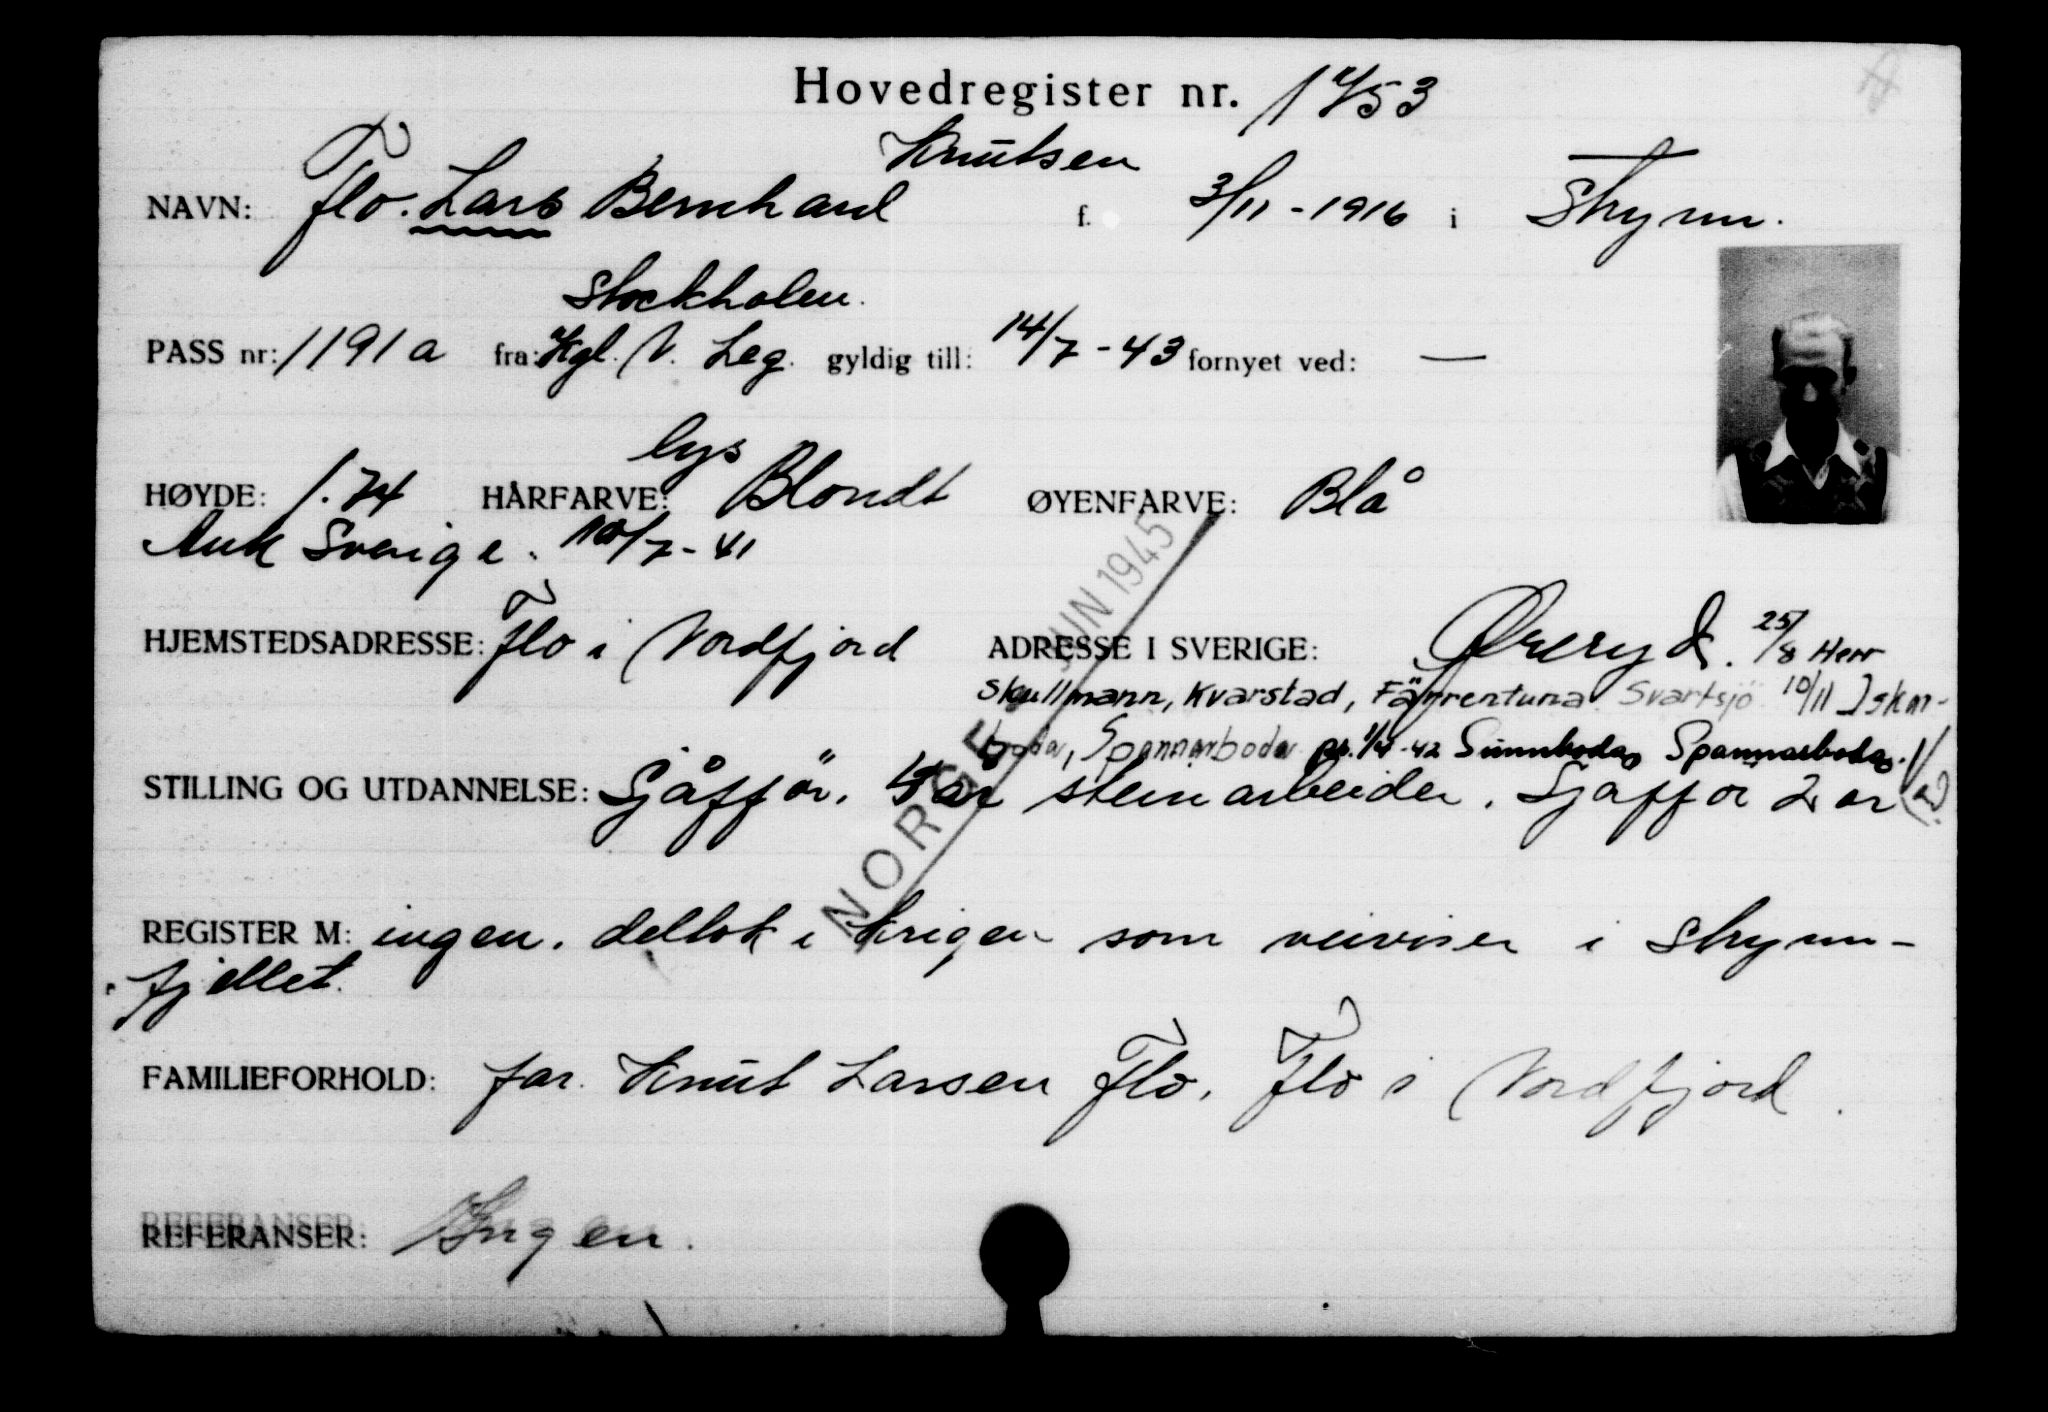 Hovedregister nr. 1753
Knutsen
NAVN: Flo. Lars Bernhard f. 3/11-1916 i Stryn.
Stockholm.
PASS nr: 1191a fra: Kgl. N. Leg. gyldig till: 14/7-43 fornyet ved: —
lys
HØYDE: 1.74 HÅRFARVE: Blondt ØYENFARVE: Blå
Ank Sverige. 10/7-41
HJEMSTEDSADRESSE: Flo i Nordfjord ADRESSE I SVERIGE: Øreryd. 25/8 Herr
Skullmann, Kvarstad, Färrentuna Svartsjö 10/11
Spannarboda 1/4-42 Sunnboda, Spannarboda.
STILLING OG UTDANNELSE: Sjåffør. år steinarbeider. Sjåffør 2 år
NORGE JUN 1945
REGISTER M: ingen. deltok i krigen som veiviser i Stryn-
fjellet.
FAMILIEFORHOLD: far. Knut Larsen Flo. Flo i Nordfjord.
REFERANSER: Ingen.